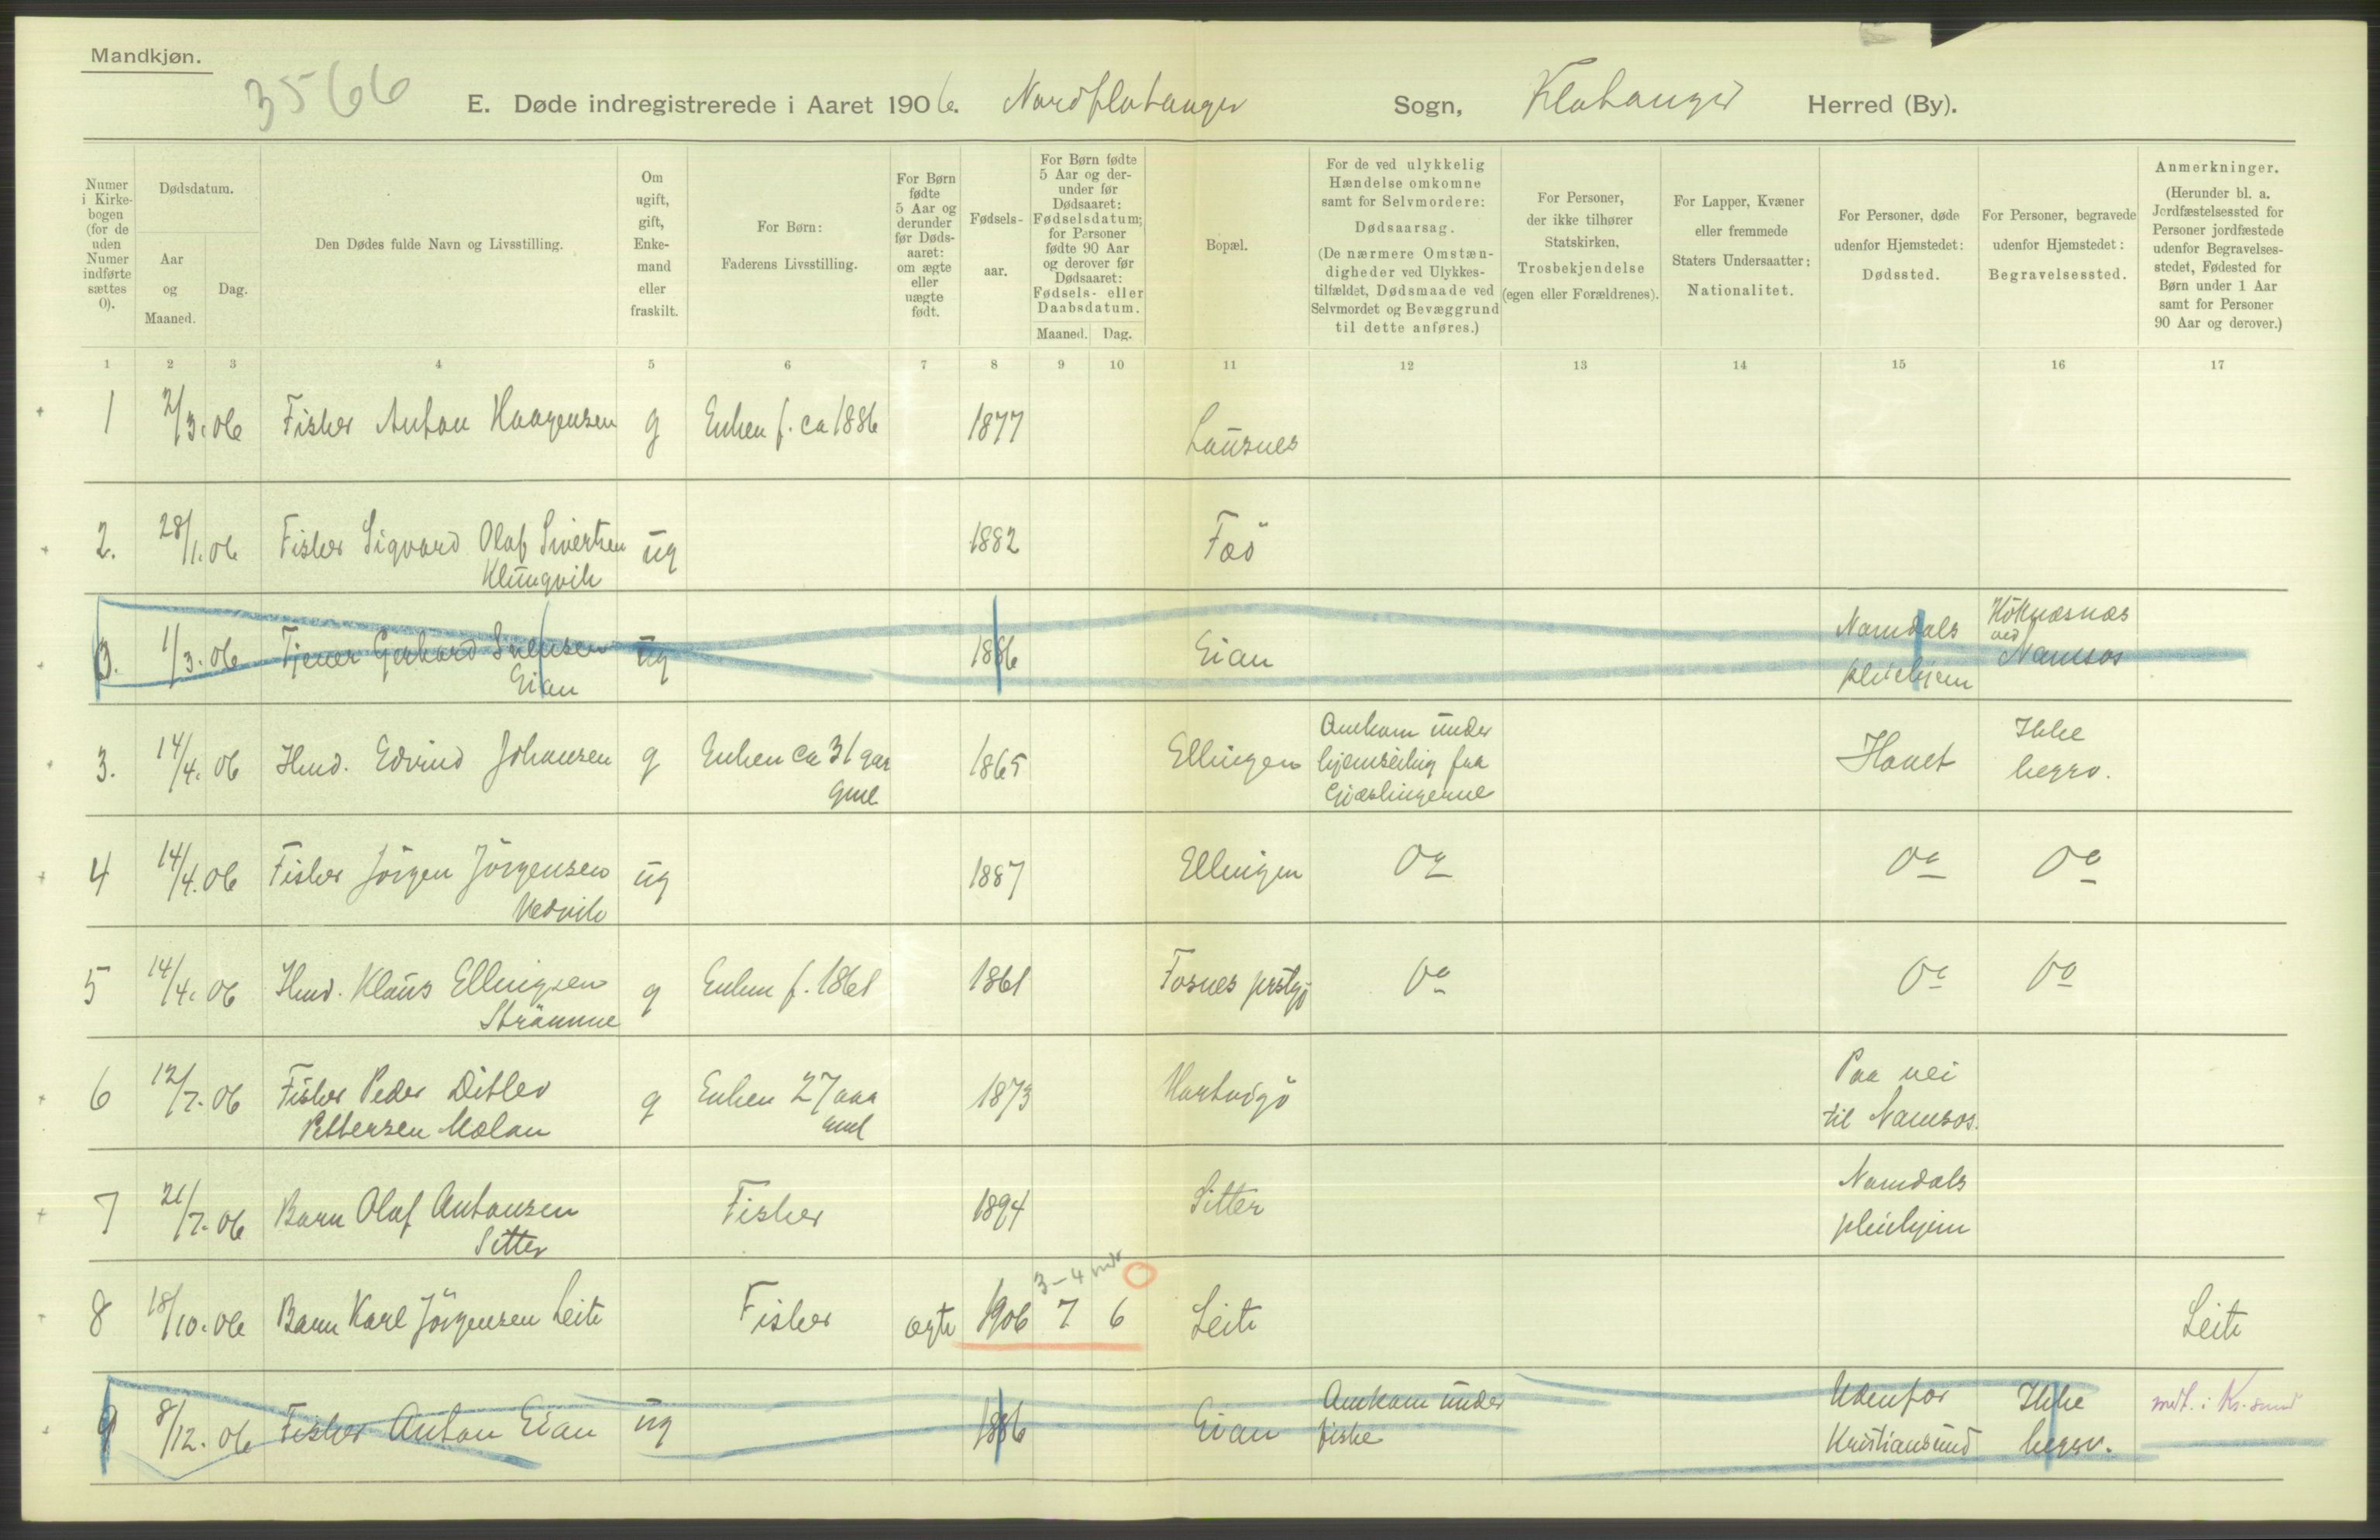 Mandkjøn.
3566
E. Døde indregistrerede i Aaret 1906. Nordflatanger Sogn, Flatanger Herred (By).
Numer i Kirkebogen (for de uden Numer indførte sættes 0).
Dødsdatum.
Aar og Maaned.
Dag.
Den Dødes fulde Navn og Livsstilling.
Om ugift, gift, Enkemand eller fraskilt.
For Børn:
Faderens Livsstilling.
For Børn fødte 5 Aar og derunder før Dødsaaret: om ægte eller uægte født.
Fødselsaar.
For Børn fødte 5 Aar og derunder før Dødsaaret: Fødselsdatum; for Personer fødte 90 Aar og derover før Dødsaaret: Fødsels- eller Daabsdatum.
Maaned. Dag.
Bopæl.
For de ved ulykkelig Hændelse omkomne samt for Selvmordere:
Dødsaarsag.
(De nærmere Omstændigheder ved Ulykkestilfældet, Dødsmaade ved Selvmordet og Bevæggrund til dette anføres.)
For Personer, der ikke tilhører Statskirken,
Trosbekjendelse
(egen eller Forældrenes).
For Lapper, Kvæner eller fremmede Staters Undersaatter:
Nationalitet.
For Personer, døde udenfor Hjemstedet:
Dødssted.
For Personer, begravede udenfor Hjemstedet:
Begravelsessted.
Anmerkninger.
(Herunder bl. a. Jordfæstelsessted for Personer jordfæstede udenfor Begravelsesstedet, Fødested for Børn under 1 Aar samt for Personer 90 Aar og derover.)
1 2 3 4 5 6 7 8 9 10 11 12 13 14 15 16 17
1 2/3.06 Fisker Anton Haagensen g Enken f. ca 1886 1877 Lausnes
2. 28/1.06 Fisker Sigvard Olaf Sivertsen ug 1882 Fæö
Klungvik
3. 1/3.06 Tjener Gerhard ug 1886 Eian Namdals Höknæsnæs
Eian pleiehjem ved Namsos
3. 14/4.06 Hmd. Edvind Johansen g Enken ca 31 aar 1865 Ellingen Omkom under Havet Ikke
gml hjemseiling fra begrv.
Gjæslingerne
4 14/4.06 Fisker Jörgen Jörgensen ug 1887 Ellingen Do Do Do
Vedvik
5 14/4.06 Hmd. Klaus Ellingsen g Enken f. 1861 1861 Fosnes prstgj Do Do Do
Strömme
6 12/7.06 Fisker Peder Ditlev g Enken 27 aar 1873 Paa vei
Pettersen gml til Namsos.
7 21/7.06 Barn Olaf Antonsen Fisker 1894 Sitter Namdals
Sitter pleiehjem
3-4 mdr
8 18/10.06 Barn Karl Jörgensen Leite Fisker ægte 1906 7 6 Leite Leite
9 8/12.06 Fisker Anton Eian ug 1886 Eian Omkom under Udenfor Ikke medt. i Kr.sund
fiske Kristiansund begrv.